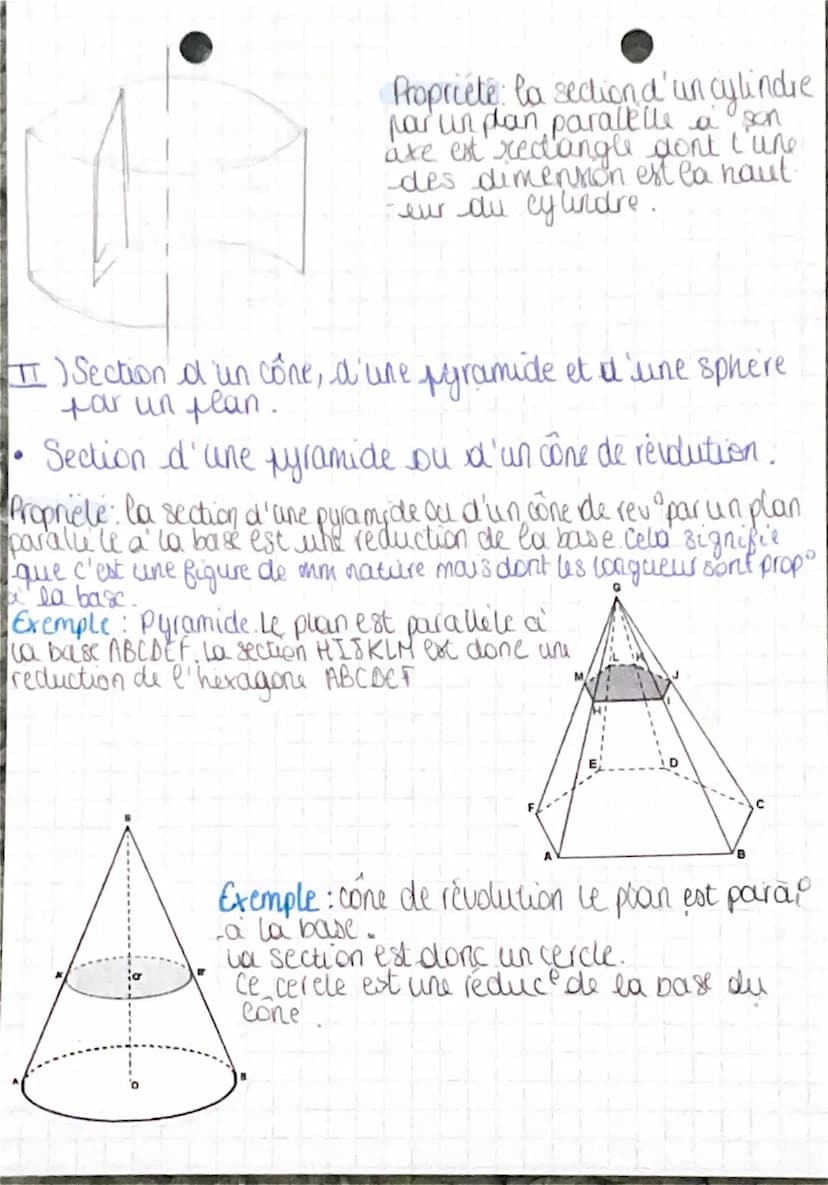 Propriété : la section d'un cylindre
par un plan parallèlle à son
axe est rectangle dont l'une
des dimension est la haut
-eur du cylindre.
II ) Section d'un cône, d'une pyramide et d'une sphère
par un plan.
• Section d'une pyramide ou d'un cône de révolution.
Propriété : la section d'une pyramide ou d'un cône de rev° par un plan
parallèle à la base est une réduction de la base. Cela signifie
que c'est une figure de mm nature mais dont les longueurs sont prop°
à la base.
G
Exemple : Pyramide. Le plan est parallèle à
la base ABCDEF. La section HIJKLM est donc une
réduction de l'hexagone ABCDEF
L K
M J
H I
E D
F C
A B
S
Exemple : cône de révolution le plan est paral^e
à la base.
La section est donc un cercle.
A' O' B'
Ce cercle est une réduc° de la base du
cône.
A O B